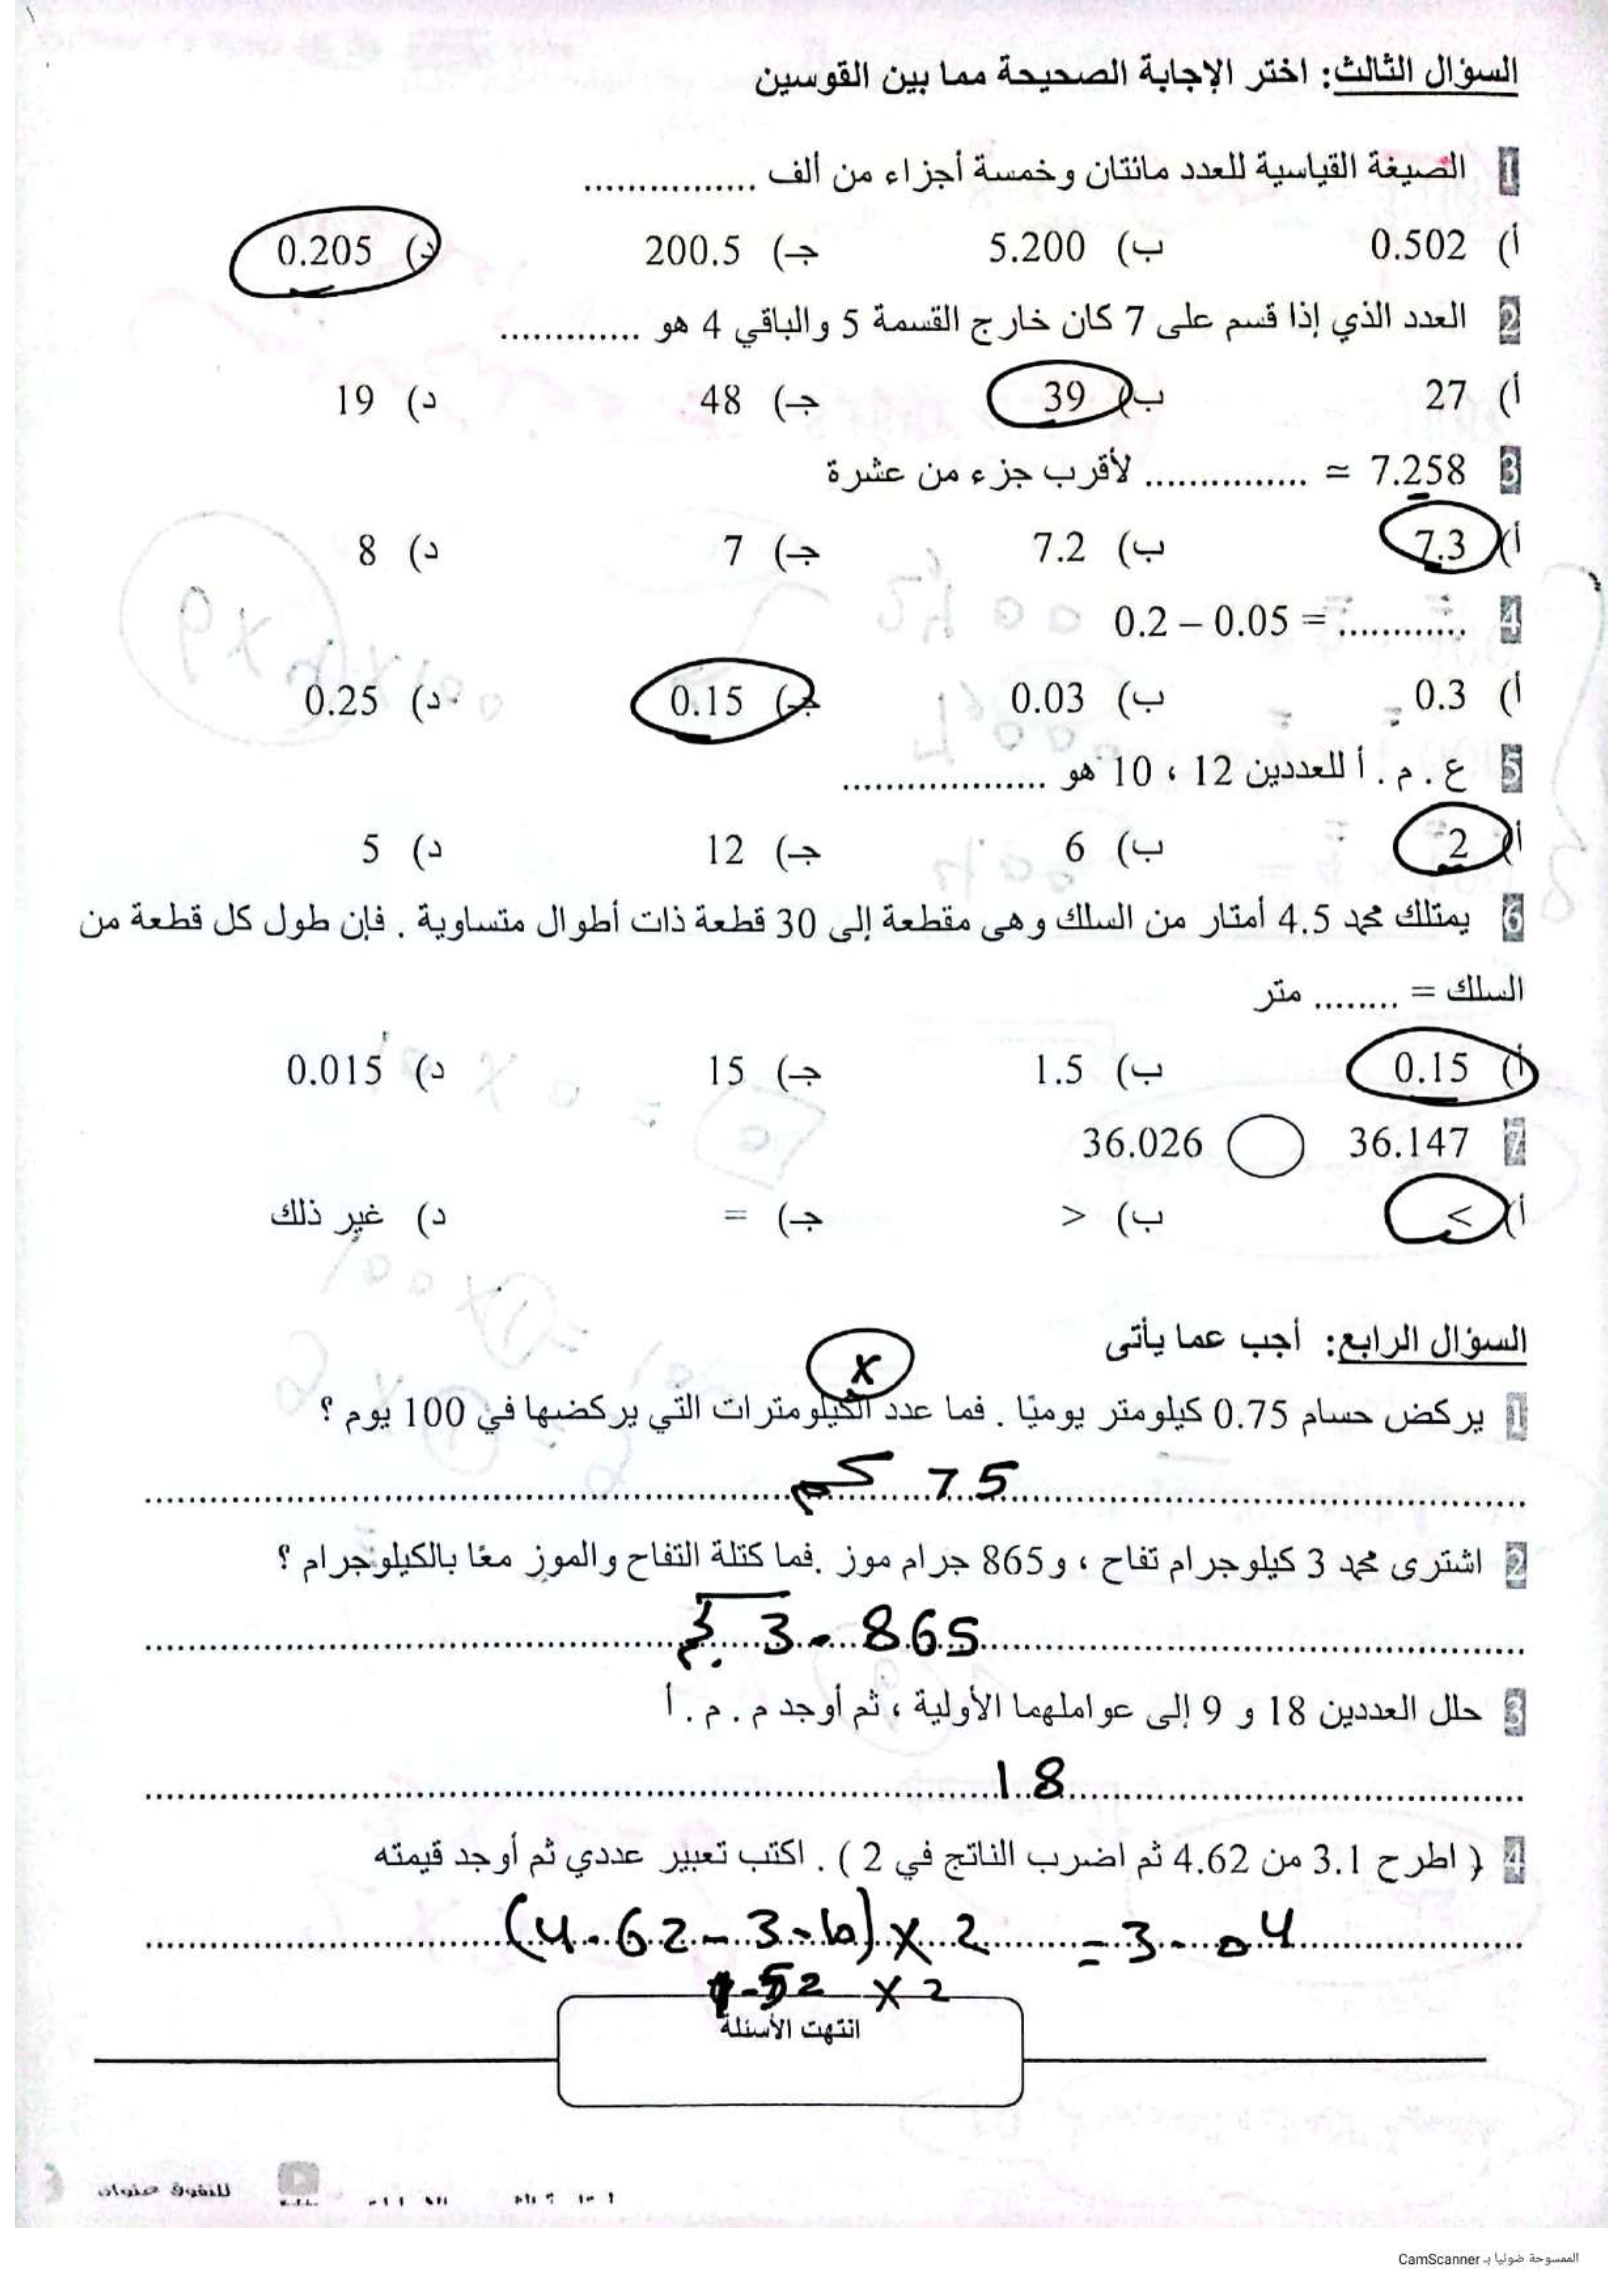 السؤال الثالث: اختر الإجابة الصحيحة مما بين القوسين
1 الصيغة القياسية للعدد مائتان وخمسة أجزاء من ألف ................
أ) 0.502 ب) 5.200 جـ) 200.5 د) 0.205
2 العدد الذي إذا قسم على 7 كان خارج القسمة 5 والباقي 4 هو .............
أ) 27 ب) 39 جـ) 48 د) 19
3 7.258 ≃ ............... لأقرب جزء من عشرة
أ) 7.3 ب) 7.2 جـ) 7 د) 8
4 0.2 – 0.05 = ............
أ) 0.3 ب) 0.03 جـ) 0.15 د) 0.25
5 ع . م . أ للعددين 12 ، 10 هو ...................
أ) 2 ب) 6 جـ) 12 د) 5
6 يمتلك محمد 4.5 أمتار من السلك وهى مقطعة إلى 30 قطعة ذات أطوال متساوية . فإن طول كل قطعة من
السلك = ........ متر
أ) 0.15 ب) 1.5 جـ) 15 د) 0.015
7 36.147 ◯ 36.026
أ) > ب) < جـ) = د) غير ذلك
السؤال الرابع: أجب عما يأتى
x
1 يركض حسام 0.75 كيلومتر يوميًا . فما عدد الكيلومترات التي يركضها في 100 يوم ؟
75 كم
2 اشترى محمد 3 كيلوجرام تفاح ، و865 جرام موز .فما كتلة التفاح والموز معًا بالكيلوجرام ؟
3.865 كجم
3 حلل العددين 18 و 9 إلى عواملهما الأولية ، ثم أوجد م . م . أ
18
4 ( اطرح 3.1 من 4.62 ثم اضرب الناتج في 2 ) . اكتب تعبير عددي ثم أوجد قيمته
(4.62 - 3.10) x 2 = 3.04
1.52 x 2
انتهت الأسئلة
للتفوق عنوان
الممسوحة ضوئيا بـ CamScanner